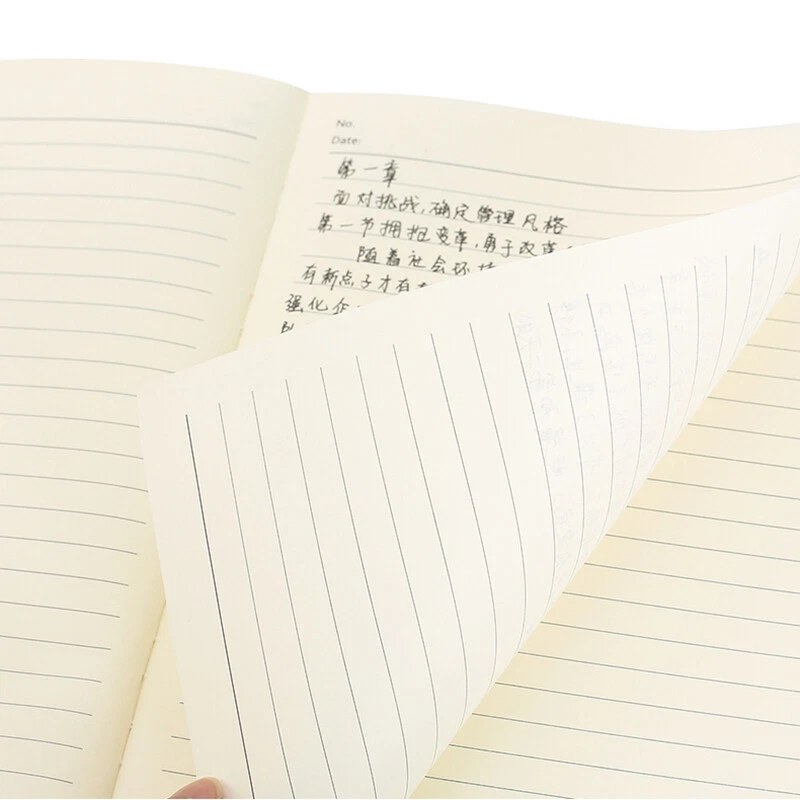 No.
Date:
第一章
面对挑战,确定管理风格
第一节拥抱变革,勇于改革
随着社会环境
有新点子才有
强化企